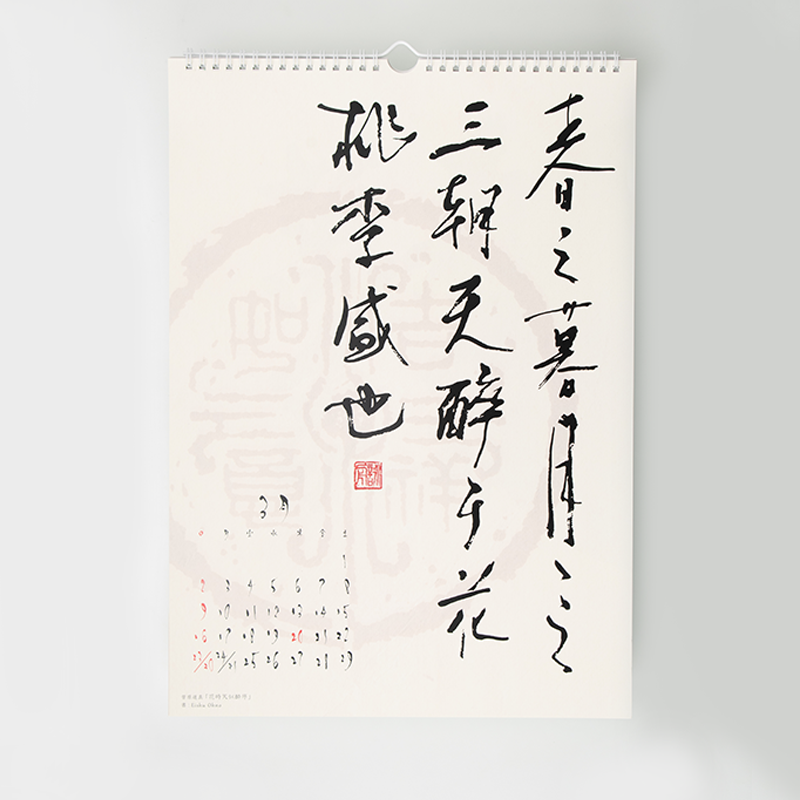 春之暮月ヽ之
三朝天酔于花
桃李盛也
3月
日 月 火 水 木 金 土
1
2 3 4 5 6 7 8
9 10 11 12 13 14 15
16 17 18 19 20 21 22
23/30 24/31 25 26 27 28 29
菅原道真「花時天似酔序」